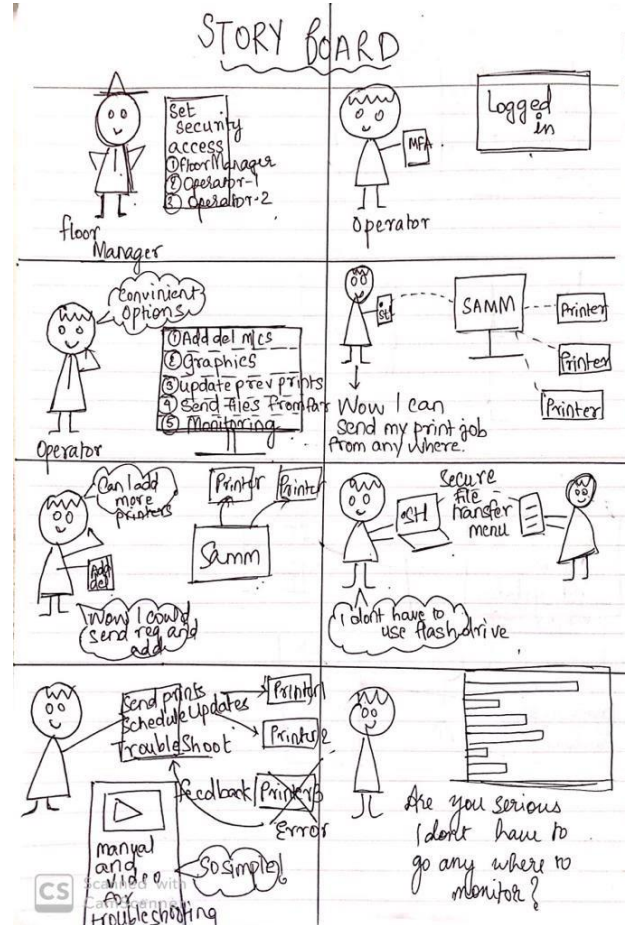 STORY BOARD
Set
Security
access
① floor Manager
② Operator-1
③ Operator-2
floor
Manager
MFA
Logged
in
Operator
Convinient
Options
① Add del m/cs
② Graphics
③ update prev prints
④ Send files from far
⑤ Monitoring
Operator
St
SAMM
Printer
Printer
Printer
Wow I can
Send my print job
from any where.
Can I add
more
printers
Add
del
Printer
Printer
Samm
Wow I could
send req and
add
SH
Secure
file
transfer
menu
I dont have to
use flash drive
Send prints
Schedule Updates
TroubleShoot
Printer1
Printer 2
feedback
Printer3
Error
manual
and
video
for
troubleshooting
So simple!
Are you serious
I dont have to
go any where to
monitor?
CS
Scanned with
CamScanner